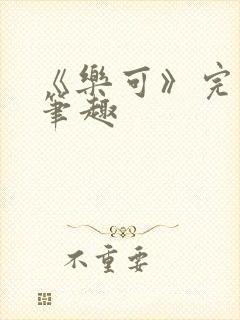 《樂可》完
筆趣
不重要